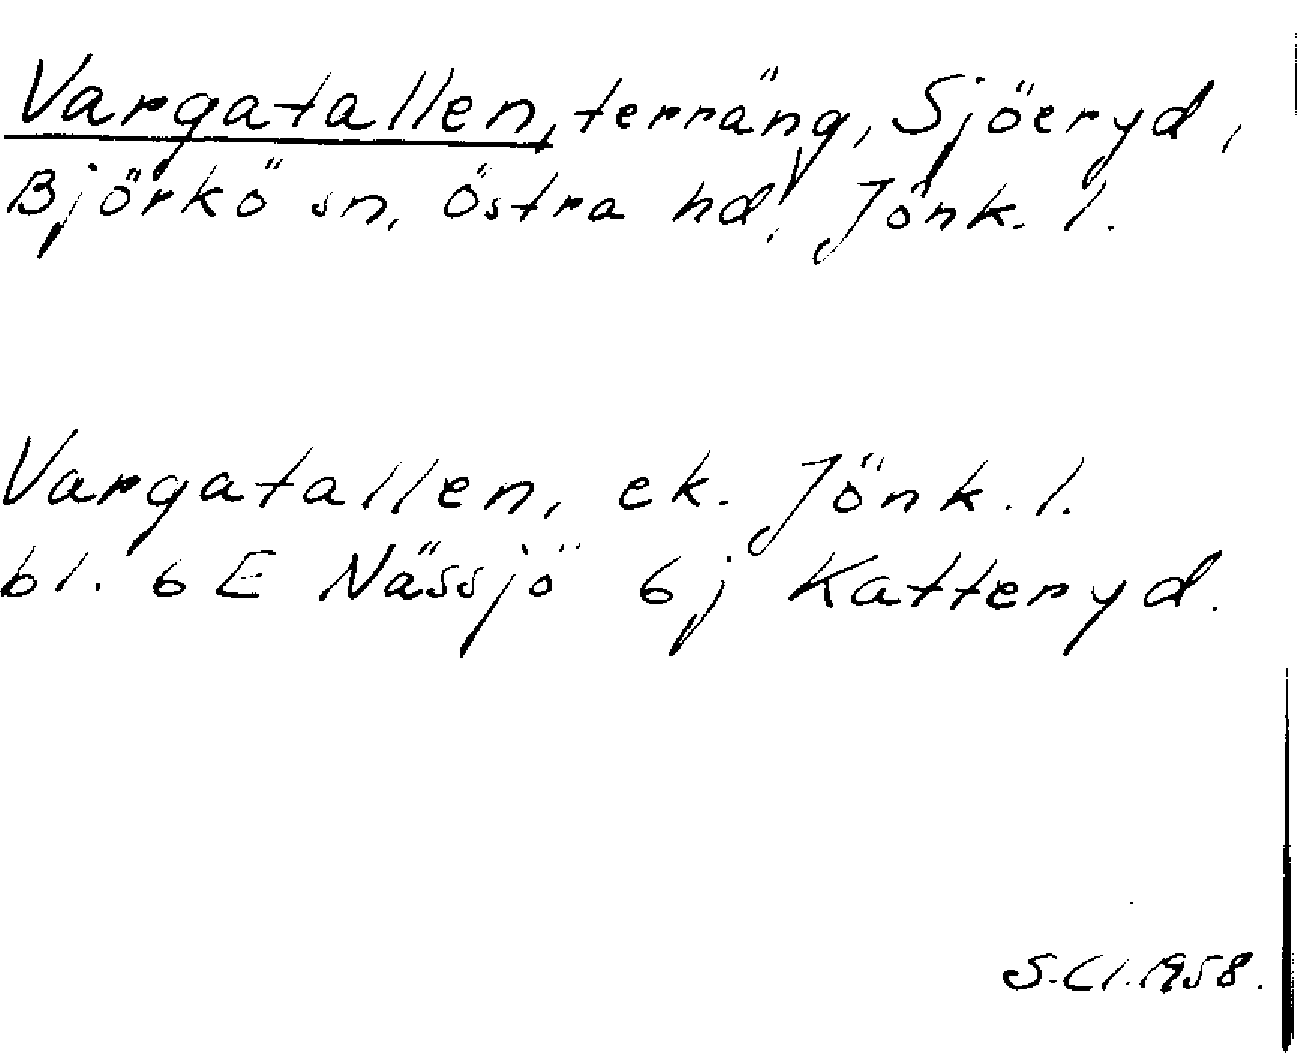 Vargatallen, terräng, Sjöeryd,
Björkö sn, Östra hd, Jönk. l.
Vargatallen, ek. Jönk. l.
bl. 6 E Nässjö 6j Katteryd.
S.Cl. 1958.